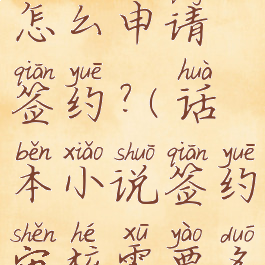 怎么申请
qiān yuē huà
签约?(话
běn xiǎo shuō qiān yuē
本小说签约
shěn hé xū yào duō
审核需要多